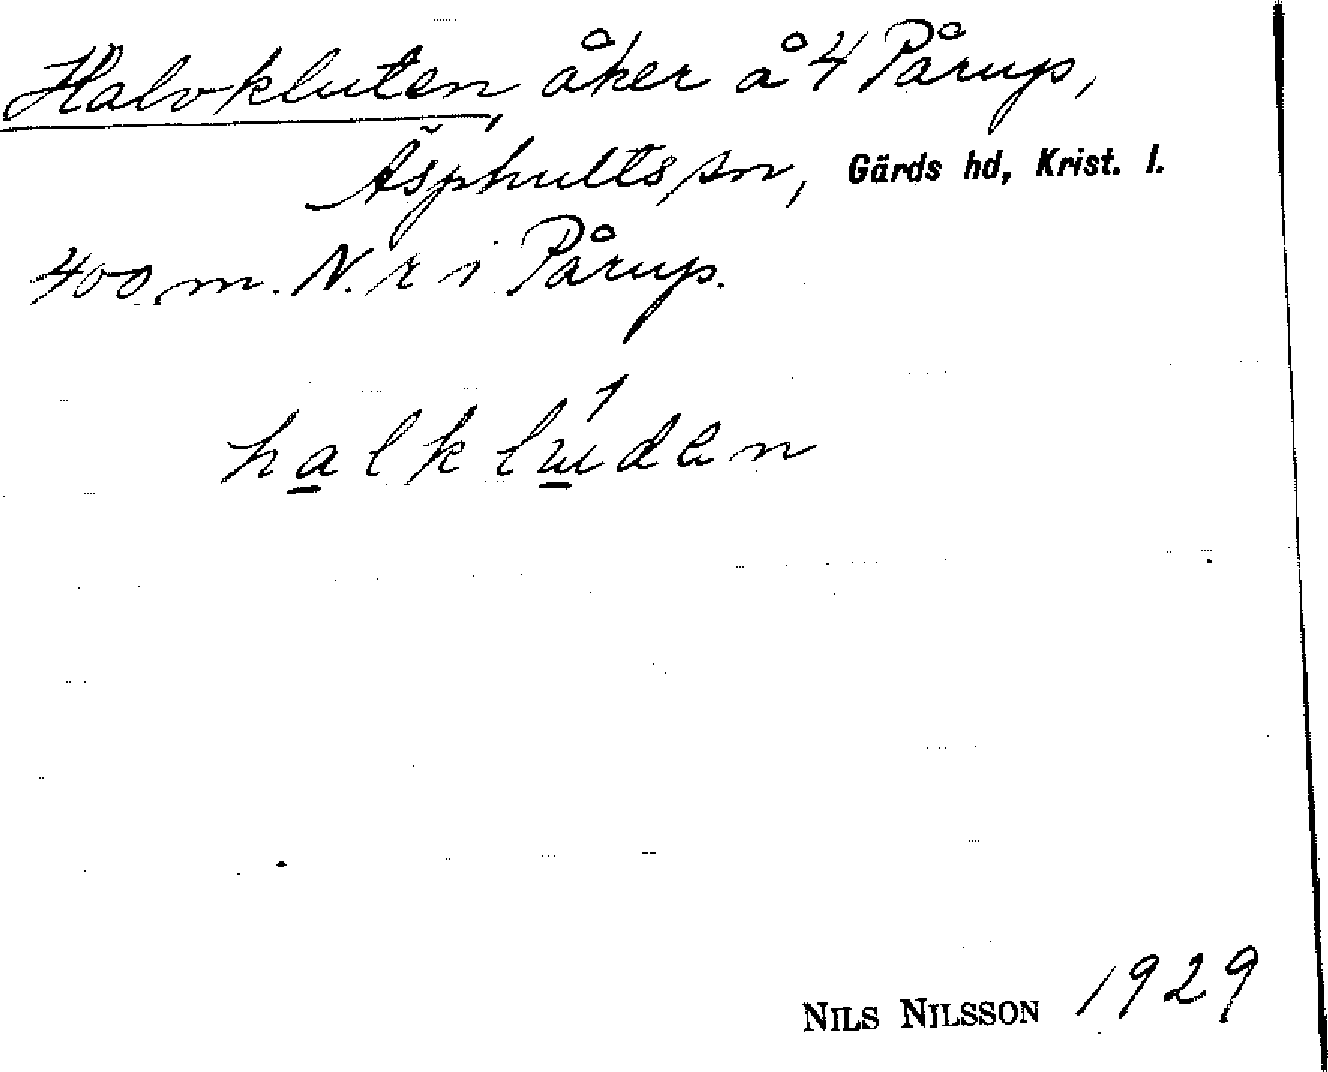 Halvkluten, åker å 4 Pårup,
Äsphults sn, Gärds hd, Krist. l.
400 m. N. r i Pårup.
halklúden
NILS NILSSON 1929